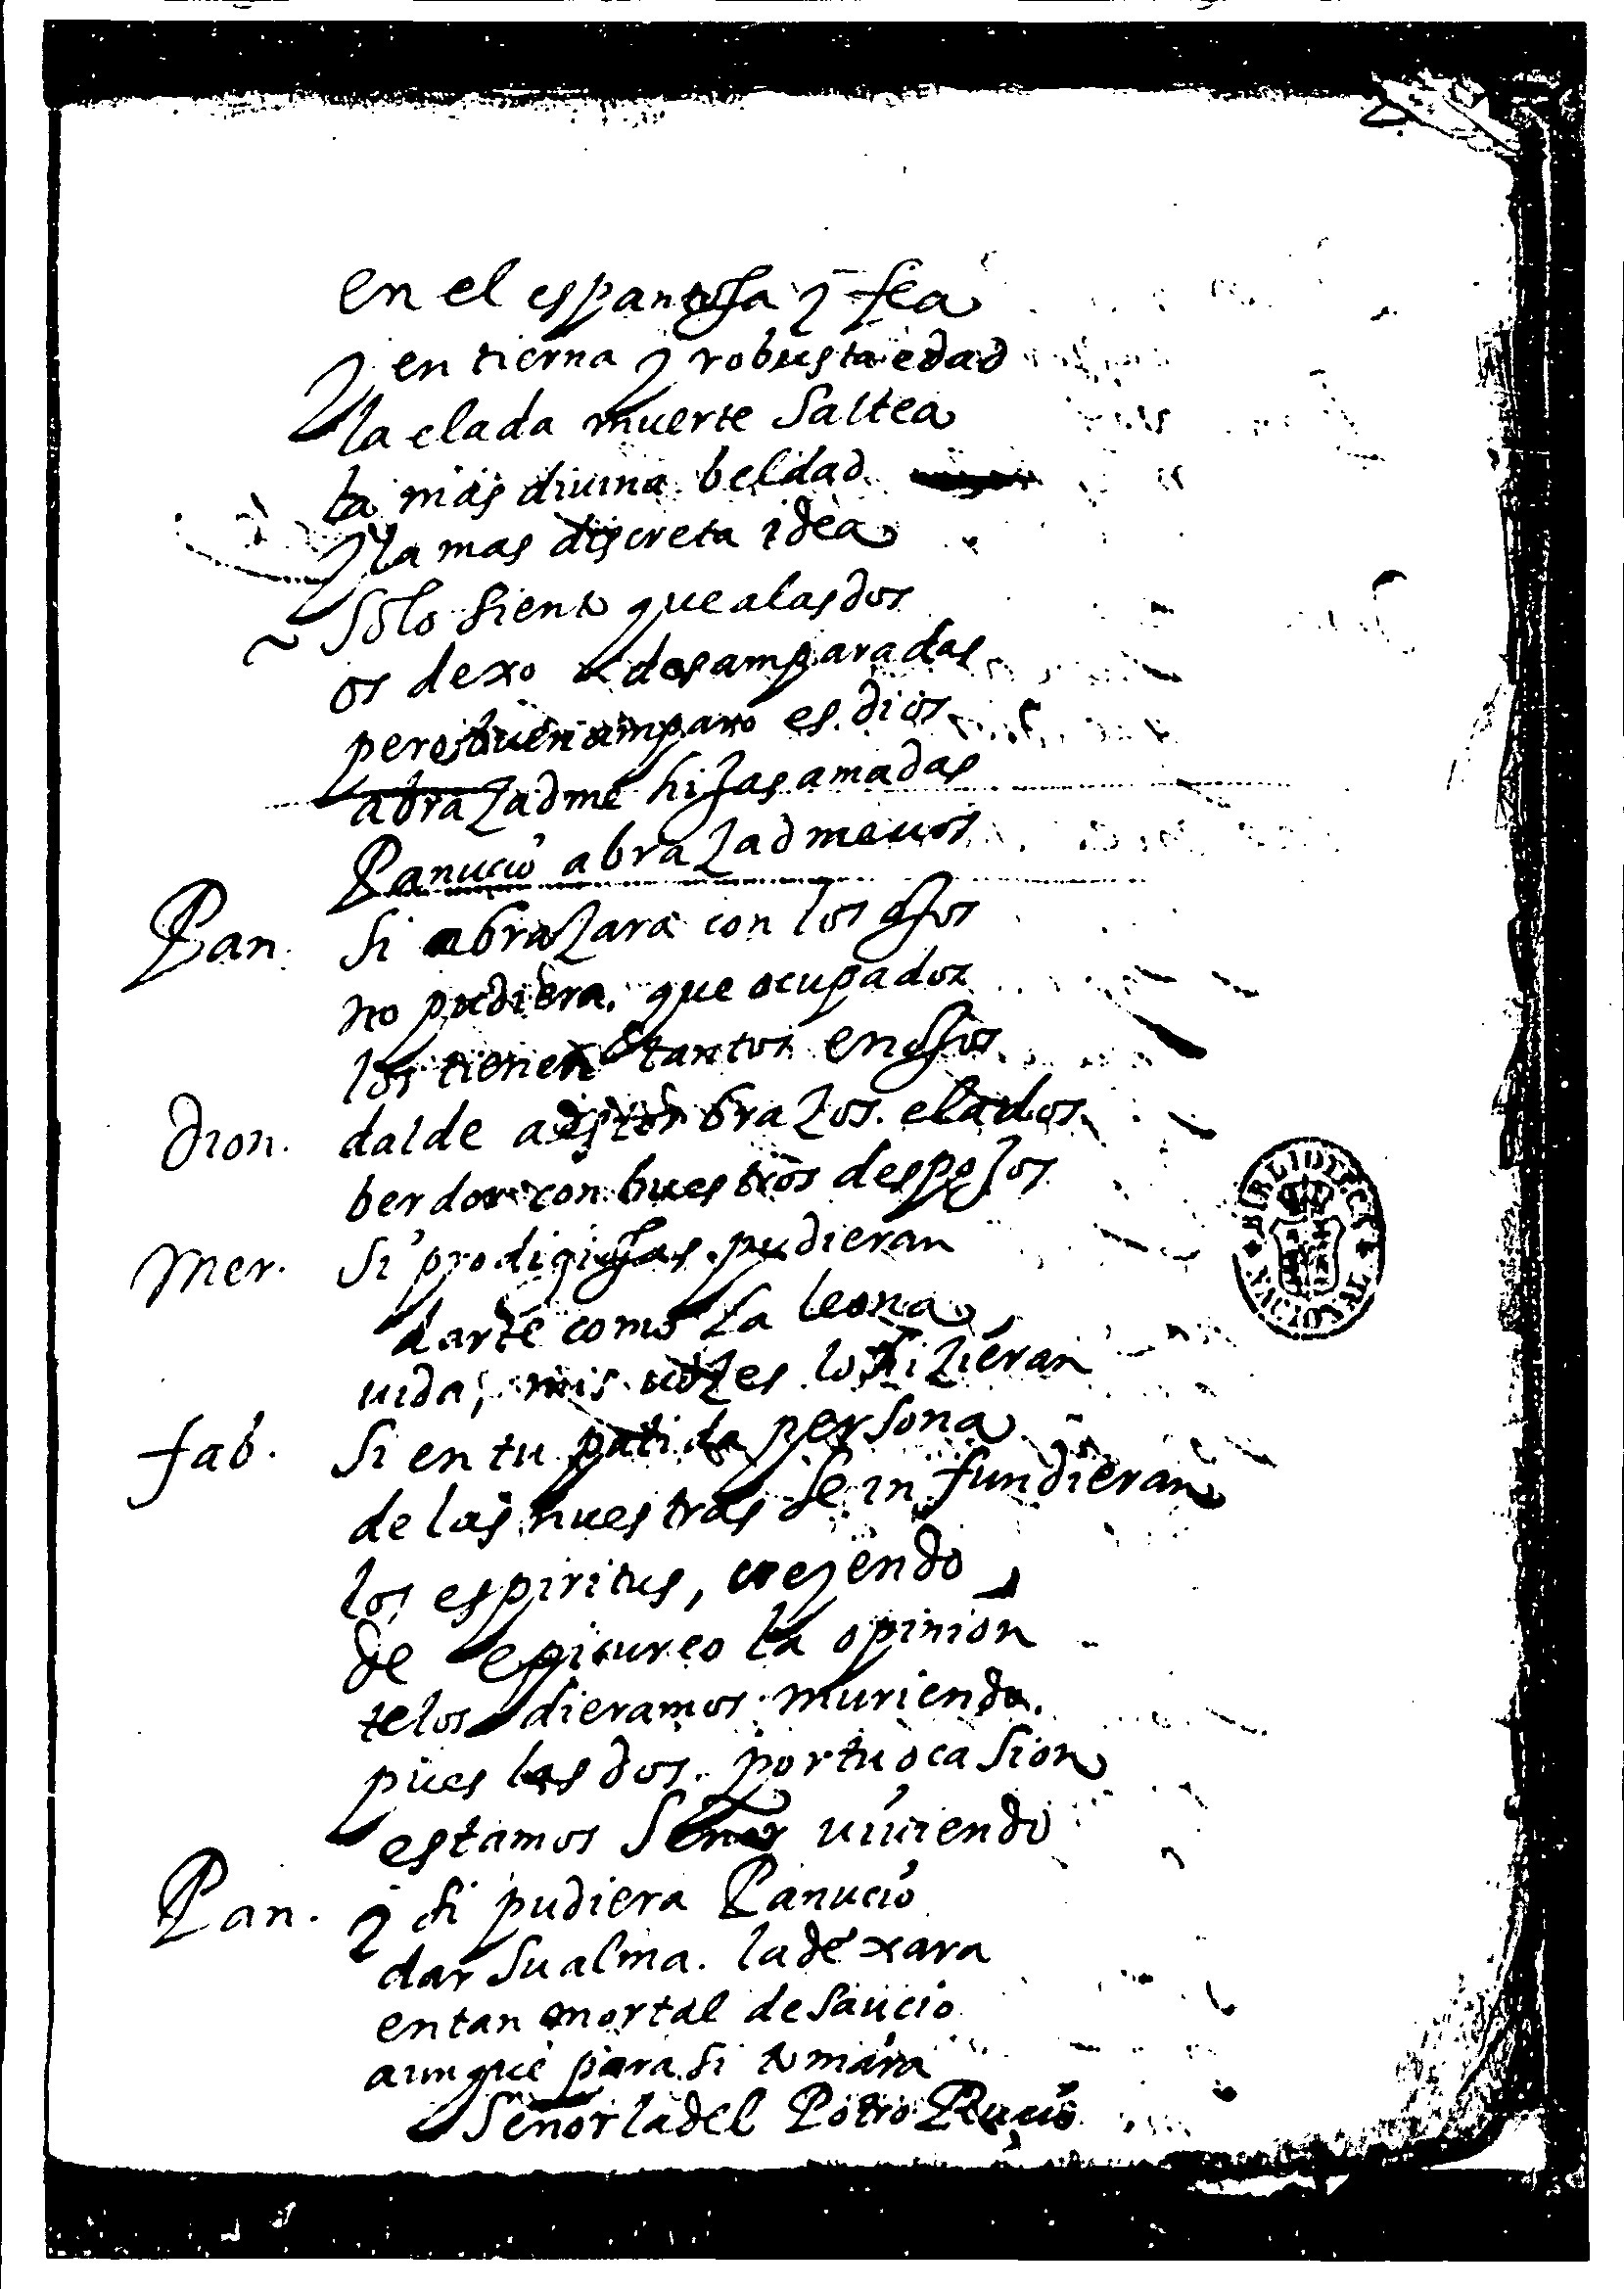 en el espantosa y fea
y en tierna y robusta edad
la elada muerte saltea
la mas diuina beldad
y la mas discreta idea
solo siento que a las dos
os dexo desamparadas
pero buen amparo es dios
abraçadme hijas amadas
Panucio abraçadme uos
Pan. si abraçara con los ojos
no pudiera. que ocupados
los tienen tantos enojos
Dion. dalde a estos braços. elados
berdor con buestros despojos
Mer. si prodigiosas pudieran
darte como la leona
uida, mis uozes lo hizieran
fab. si en tu palida persona
de las nuestras se infundieran
los espiritus, creyendo
de epicureo la opinion
te los dieramos muriendo.
pues las dos. por tu ocasion
estamos señor uiuiendo
Pan. y si pudiera Panucio
dar su alma. la dexara
en tan mortal desaucio
aunque para si tomara
señor la del Potro Rucio
BIBLIOTECA NACIONAL